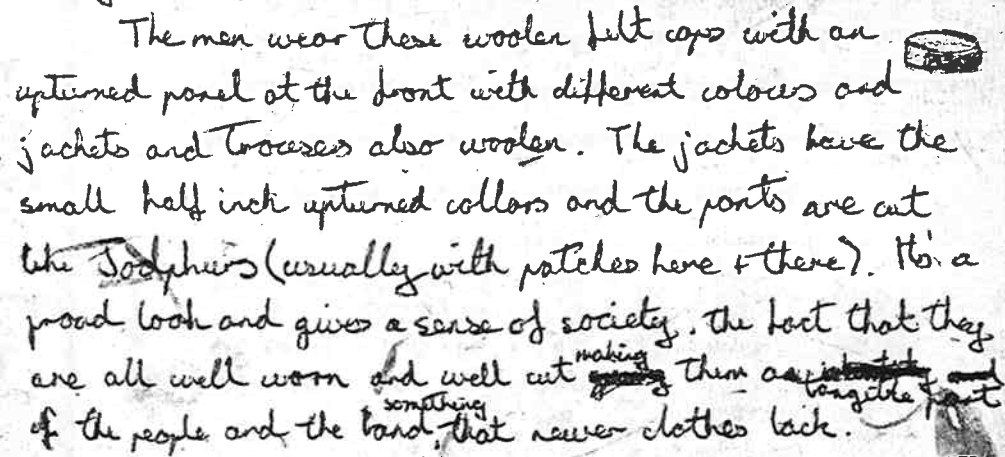 The men wear these woolen felt caps with an
upturned panel at the front with different colours and
jackets and Trouses also woolen. The jackets have the
small half inch upturned collars and the pants are cut
like Jodphurs (usually with patches here + there). It's a
proud look and gives a sense of society. the fact that they
are all well worn and well cut making them a tangible part
of the people and the land, something that newer clothes lack.